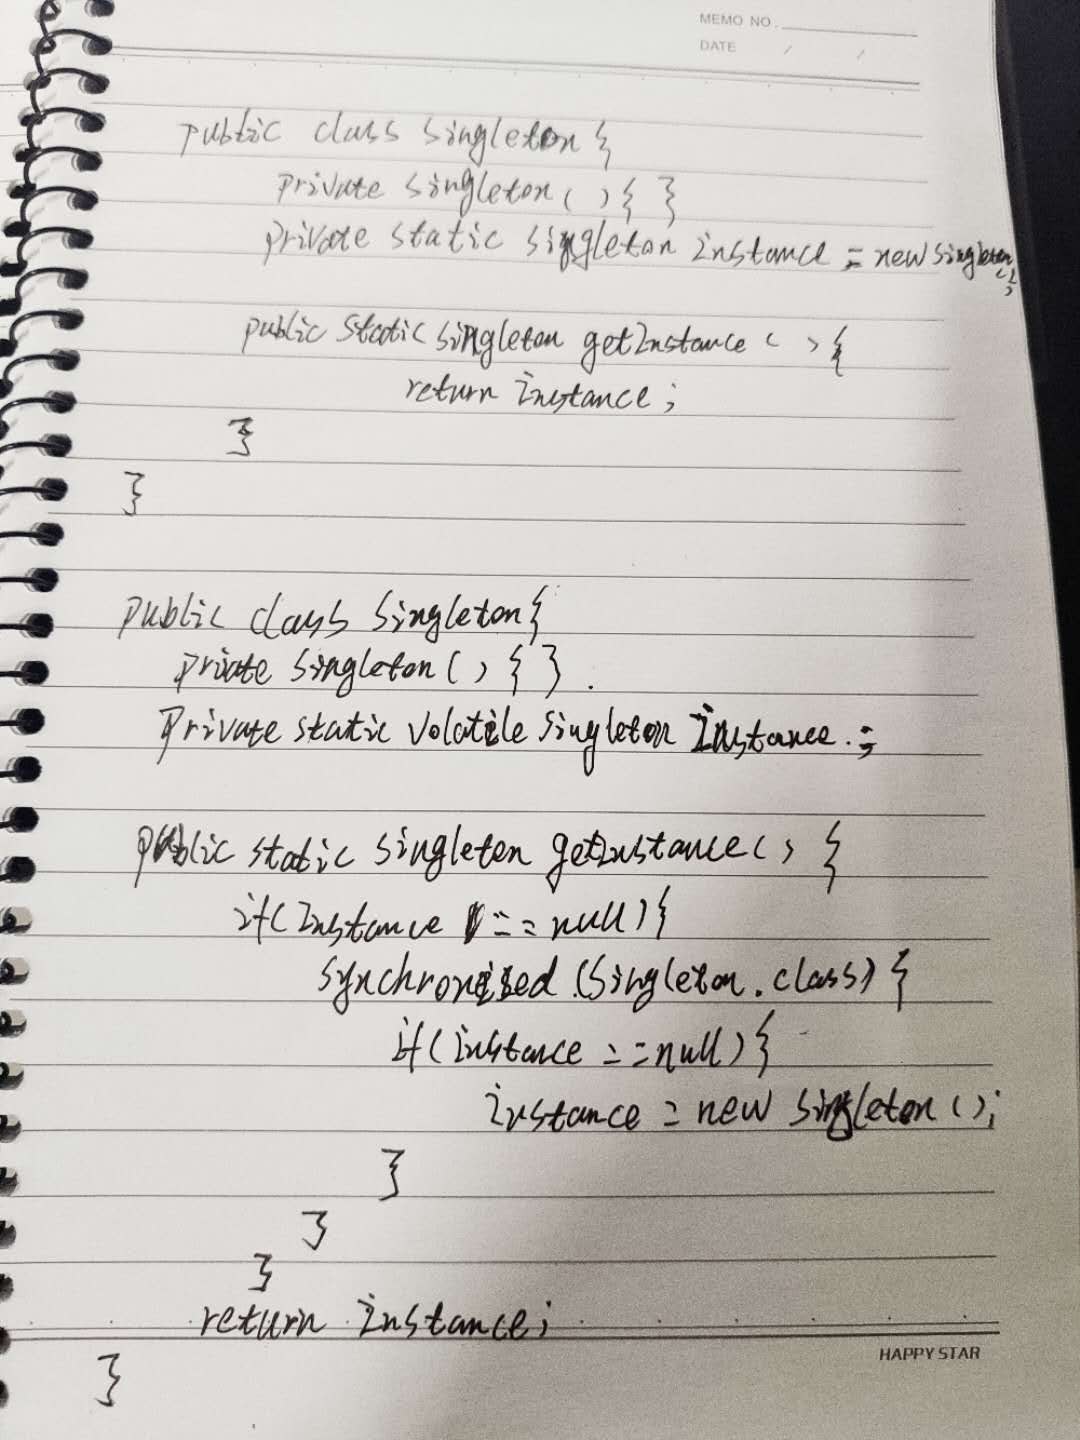 MEMO NO.
DATE / /
public class Singleton {
private Singleton ( ) { }
private static Singleton instance = new Singleton
( );
public static Singleton getInstance ( ) {
return instance ;
}
}
public class Singleton {
private Singleton ( ) { } .
Private static volatile Singleton Instance . ;
public static Singleton getInstance ( ) {
if ( Instance == null ) {
synchronized (Singleton . class) {
if ( instance == null ) {
instance = new Singleton ( ) ;
}
}
}
return instance ;
HAPPY STAR
}